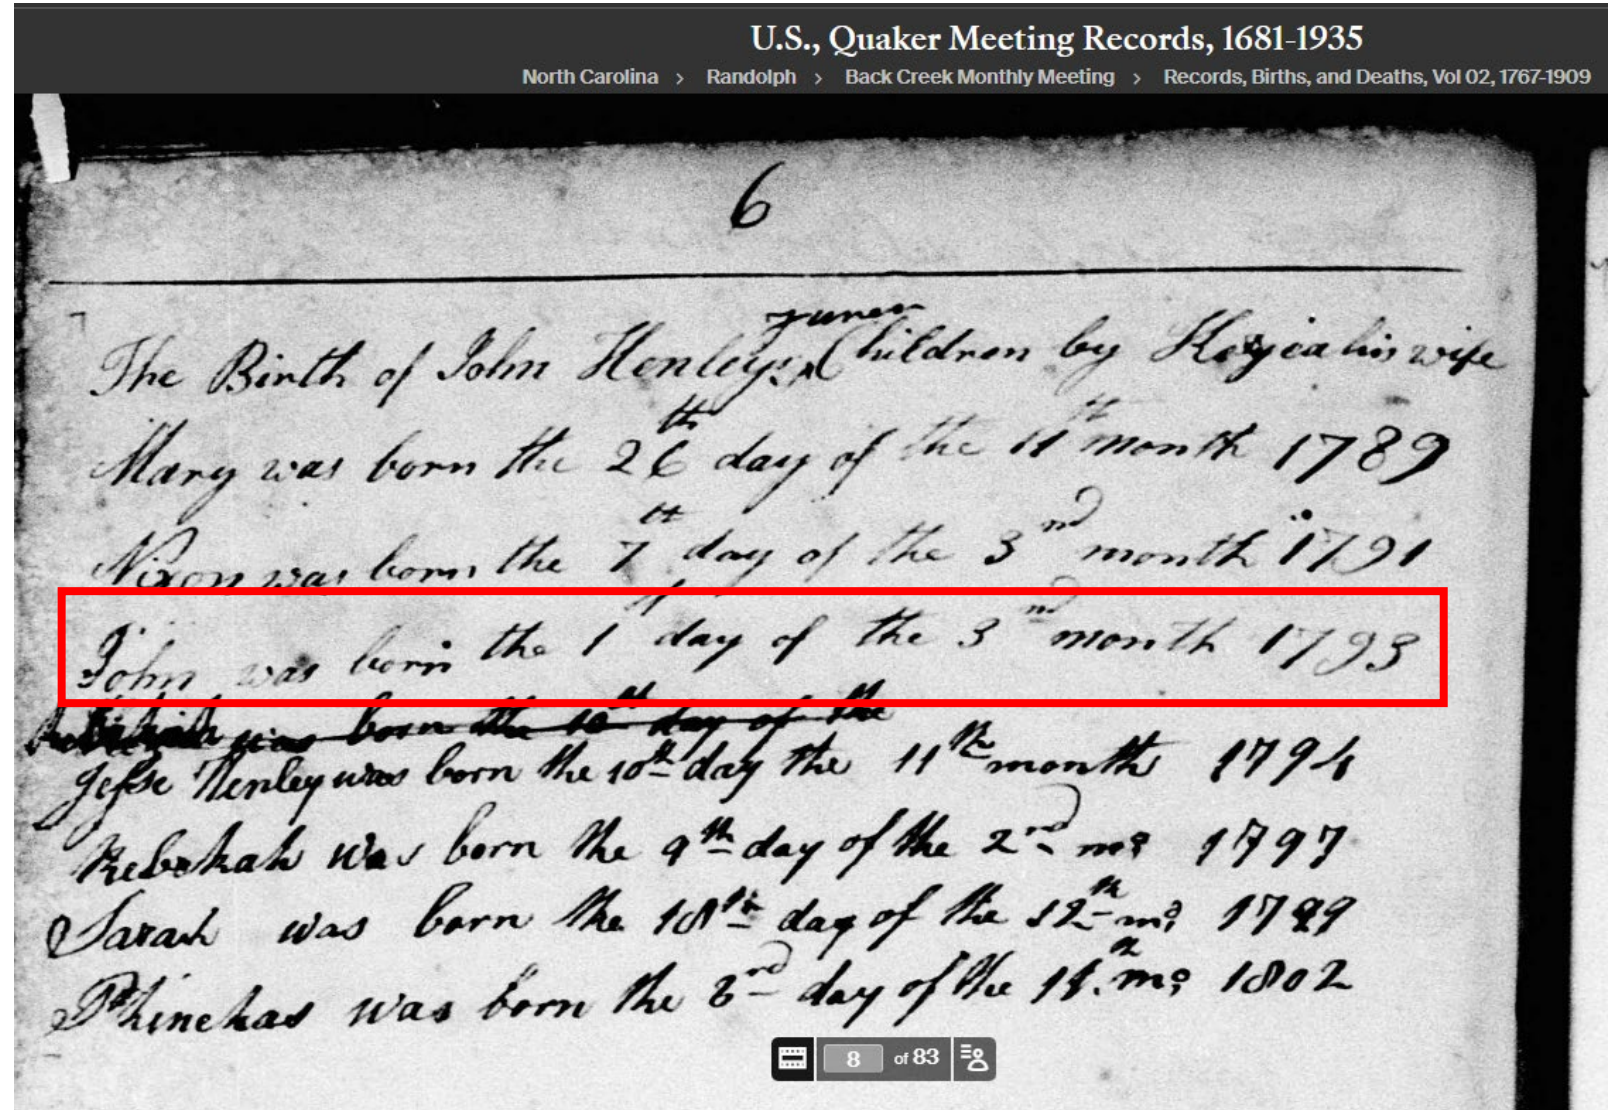 U.S., Quaker Meeting Records, 1681-1935
North Carolina > Randolph > Back Creek Monthly Meeting > Records, Births, and Deaths, Vol 02, 1767-1909
6
Juner
The Birth of John Henleys ^ Children by his wife
Mary was born the 26th day of the 11th month 1789
Nixon was born the 7th day of the 3nd month 1791
John was born the 1st day of the 3nd month 1793
was born the 10th day of the
Jesse Henley was born the 10th day the 11th month 1794
Rebekah was born the 9th day of the 2nd mo 1797
Sarah was born the 18th day of the 12th mo 1799
Phinehas was born the day of the 11th mo 1802
8 of 83